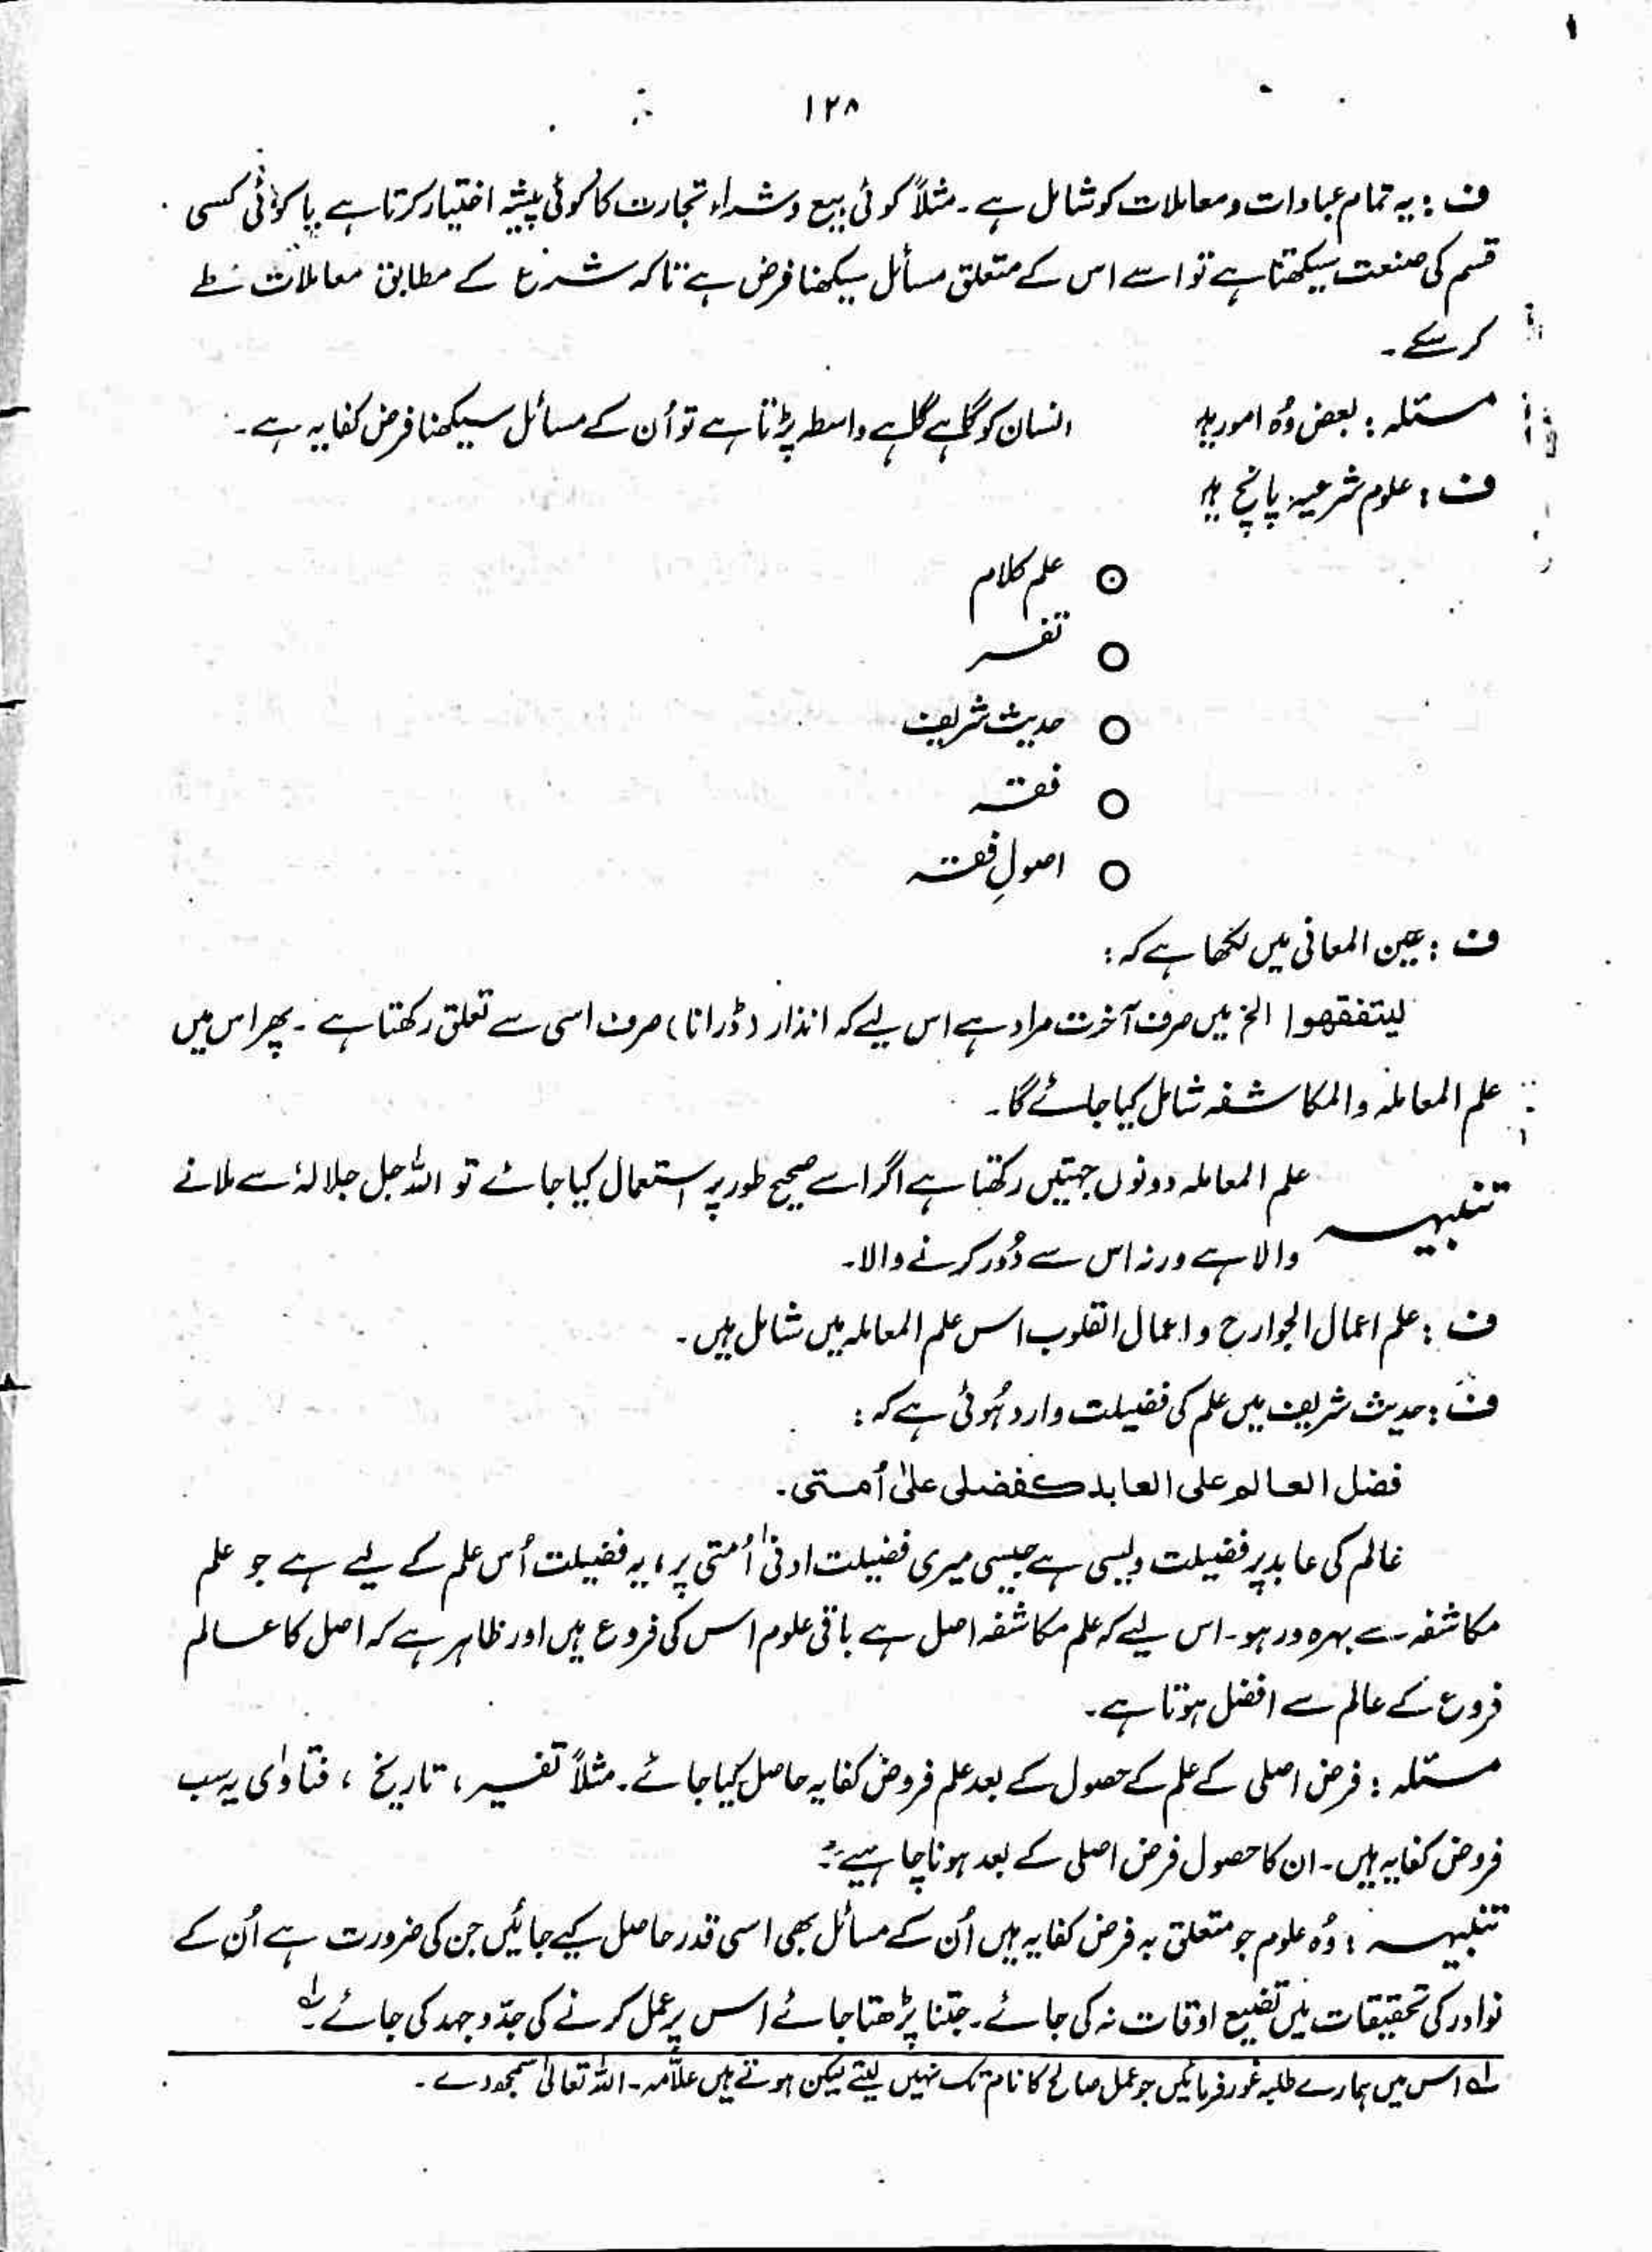 ۱۲۸
ف : یہ تمام عبادات و معاملات کو شامل ہے ۔ مثلاً کوئی بیع و شراء تجارت کا کوئی پیشہ اختیار کرتا ہے یا کوئی کسی
قسم کی صنعت سیکھتا ہے تو اسے اس کے متعلق مسائل سیکھنا فرض ہے تاکہ شرع کے مطابق معاملات طے
کر سکے ۔
مسئلہ : بعض وُہ امور انسان کو گاہے گاہے واسطہ پڑتا ہے تو اُن کے مسائل سیکھنا فرض کفایہ ہے ۔
ف : علوم شرعیہ پانچ
علم کلام
تفسیر
حدیث شریف
فقہ
اصولِ فقہ
ف : عین المعانی میں لکھا ہے کہ :
لیتفقھوا الخ میں صرف آخرت مراد ہے اس لیے کہ انذار (ڈرانا) صرف اسی سے تعلق رکھتا ہے ۔ پھر اس میں
علم المعاملہ والمکاشفہ شامل کیا جائے گا ۔
تنبیہ علم المعاملہ دونوں جہتیں رکھتا ہے اگر اسے صحیح طور پر استعمال کیا جائے تو اللہ جل جلالہٗ سے ملانے
والا ہے ورنہ اس سے دُور کرنے والا ۔
ف : علم اعمال الجوارح و اعمال القلوب اس علم المعاملہ میں شامل ہیں ۔
ف : حدیث شریف میں علم کی فضیلت وارد ہُوئی ہے کہ :
فضل العالم علی العابد کفضلی علیٰ اُمتی ۔
عالم کی عابد پر فضیلت ویسی ہے جیسی میری فضیلت ادنیٰ اُمتی پر ، یہ فضیلت اُس علم کے لیے ہے جو علم
مکاشفہ سے بہرہ ور ہو ۔ اس لیے کہ علم مکاشفہ اصل ہے باقی علوم اس کی فروع ہیں اور ظاہر ہے کہ اصل کا عالم
فروع کے عالم سے افضل ہوتا ہے ۔
مسئلہ : فرض اصلی کے علم کے حصول کے بعد علم فروض کفایہ حاصل کیا جائے ۔ مثلاً تفسیر ، تاریخ ، فتاوٰی یہ سب
فروض کفایہ ہیں ۔ ان کا حصول فرض اصلی کے بعد ہونا چاہیے ۔
تنبیہ : وُہ علوم جو متعلق بہ فرض کفایہ ہیں اُن کے مسائل بھی اسی قدر حاصل کیے جائیں جن کی ضرورت ہے اُن کے
نوادر کی تحقیقات میں تضییع اوقات نہ کی جائے ۔ جتنا پڑھتا جائے اس پر عمل کرنے کی جدّوجہد کی جائے ۔ لہ
لہ اس میں ہمارے طلبہ غور فرمائیں جو عمل صالح کا نام تک نہیں لیتے لیکن ہوتے ہیں علّامہ ۔ اللہ تعالیٰ سمجھ دے ۔